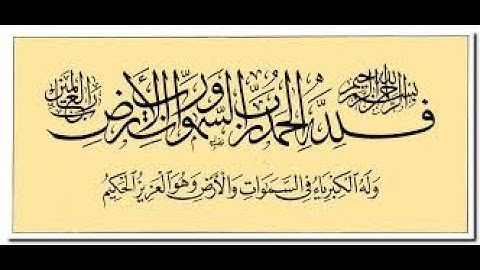 بسم الله الرحمن الرحيم
فَلِلَّهِ الْحَمْدُ رَبِّ السَّمَوَاتِ وَرَبِّ الْأَرْضِ رَبِّ الْعَالَمِينَ
وَلَهُ الْكِبْرِيَاءُ فِي السَّمَوَاتِ وَالْأَرْضِ وَهُوَ الْعَزِيزُ الْحَكِيمُ